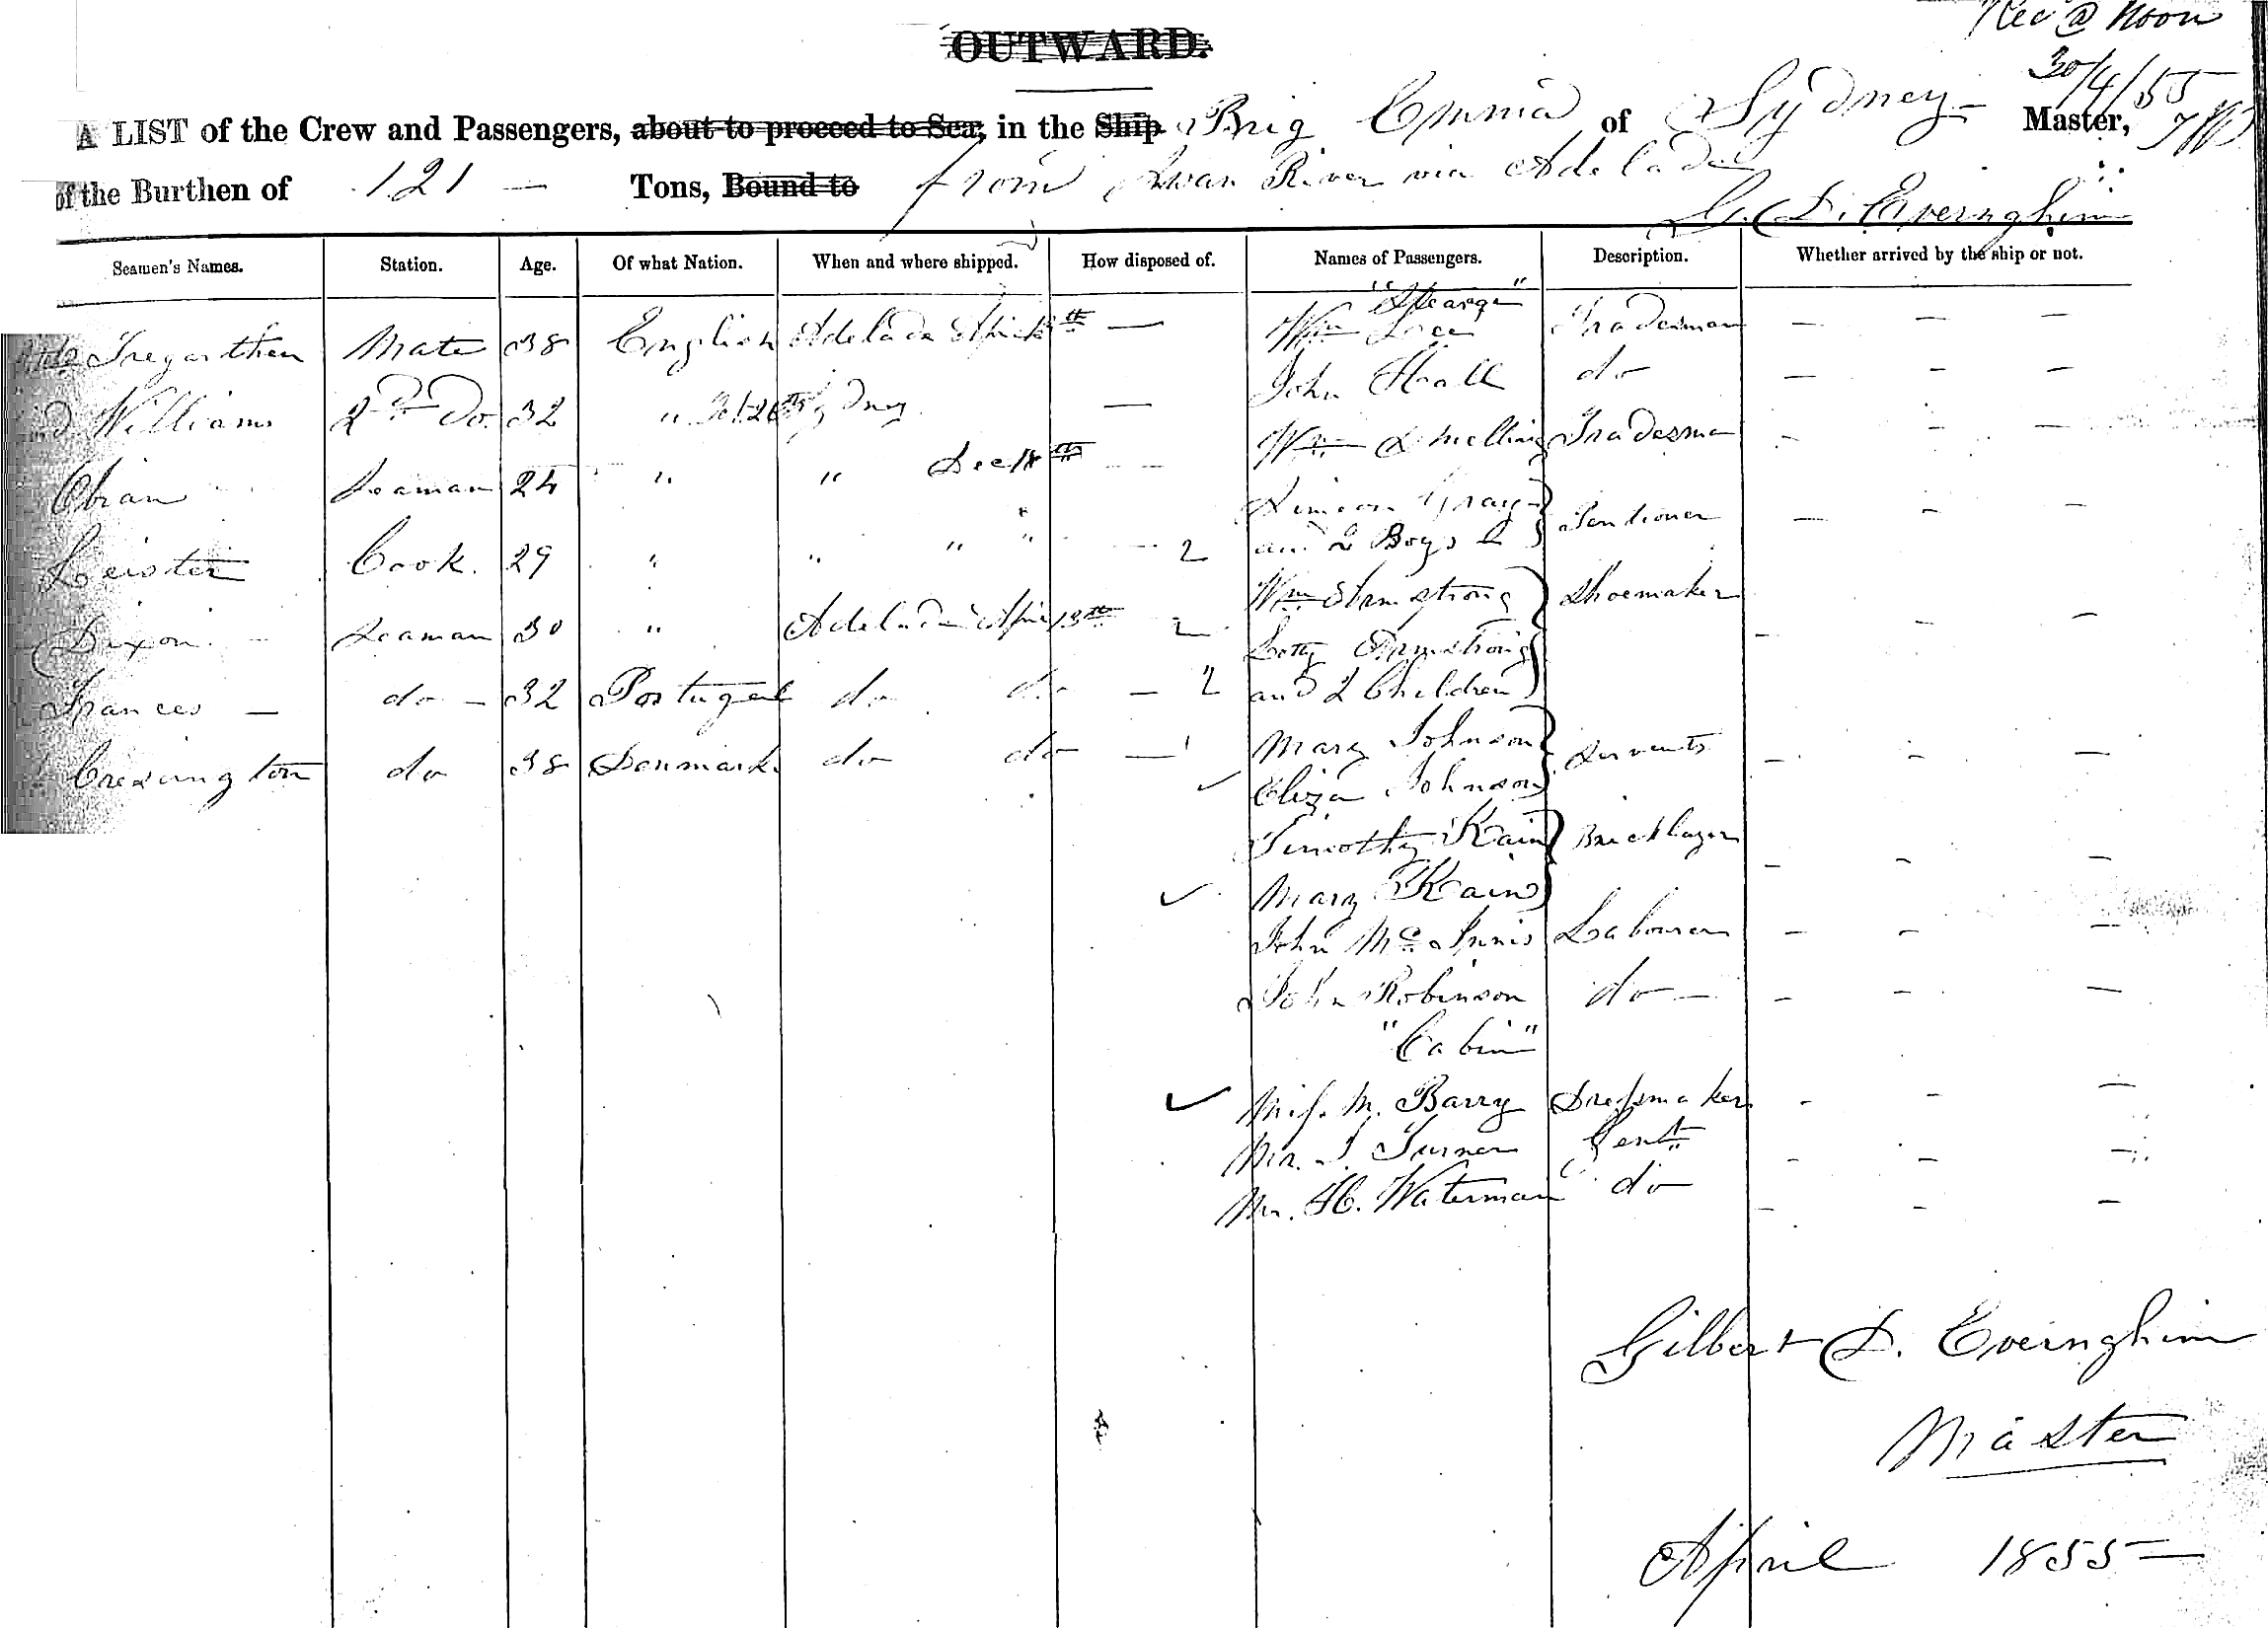 Rec @ Noon
30/4/55
OUTWARD.
A LIST of the Crew and Passengers, about to proceed to Sea, in the Ship Brig Emma of Sydney Master,
of the Burthen of 121 — Tons, Bound to from Swan River via Adelade
G. D. Everinghim
Seamen's Names. Station. Age. Of what Nation. When and where shipped. How disposed of. Names of Passengers. Description. Whether arrived by the ship or not.
"Stearge"
Tregarthen Mate 38 English Adelade April th — Wm Tradesman — — —
Williams 2nd Do. 32 " Sydney — John Hall do — — —
Wm Smelling Tradesman - - —
Obrian Seaman 24 " " Dec 18th — Simeon Gray
and 2 Boys } Pensioner — - —
Leister Cook. 29 " " " " — 2
Wm Armstrong } Shoemaker
Dixon. Seaman 30 " Adelade April 13th 2 Lotty Armstrong - - —
Frances — do — 32 Portugal do do — 2 and 2 Children
Mary Johnson } Servants
Cressington do 38 Denmark do do — ' Eliza Johnson - - —
Timothy Kain } Bricklayer
✓ Mary Kain - - —
John McInnis Labourer - - —
John Robinson do — - - —
"Cabin"
✓ Miss M. Barry Dressmaker - - —
Mr. J. Turner Gent - - —
Mr. H. Waterman do - - —
Gilbert D. Everinghim
Master
April 1855 —